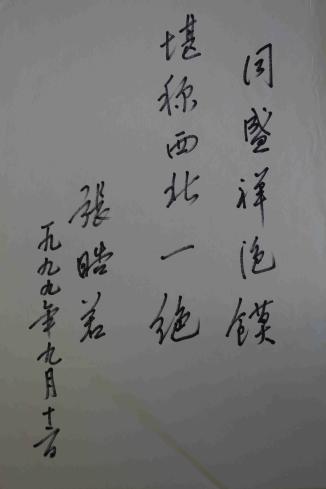 同盛祥泡馍
堪称西北一绝
張皓若
一九九九年九月十二日